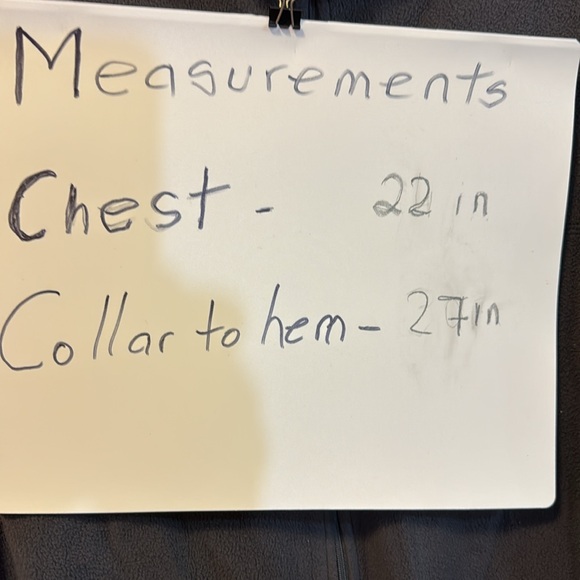 Measurements
Chest - 22 in
Collar to hem - 27in